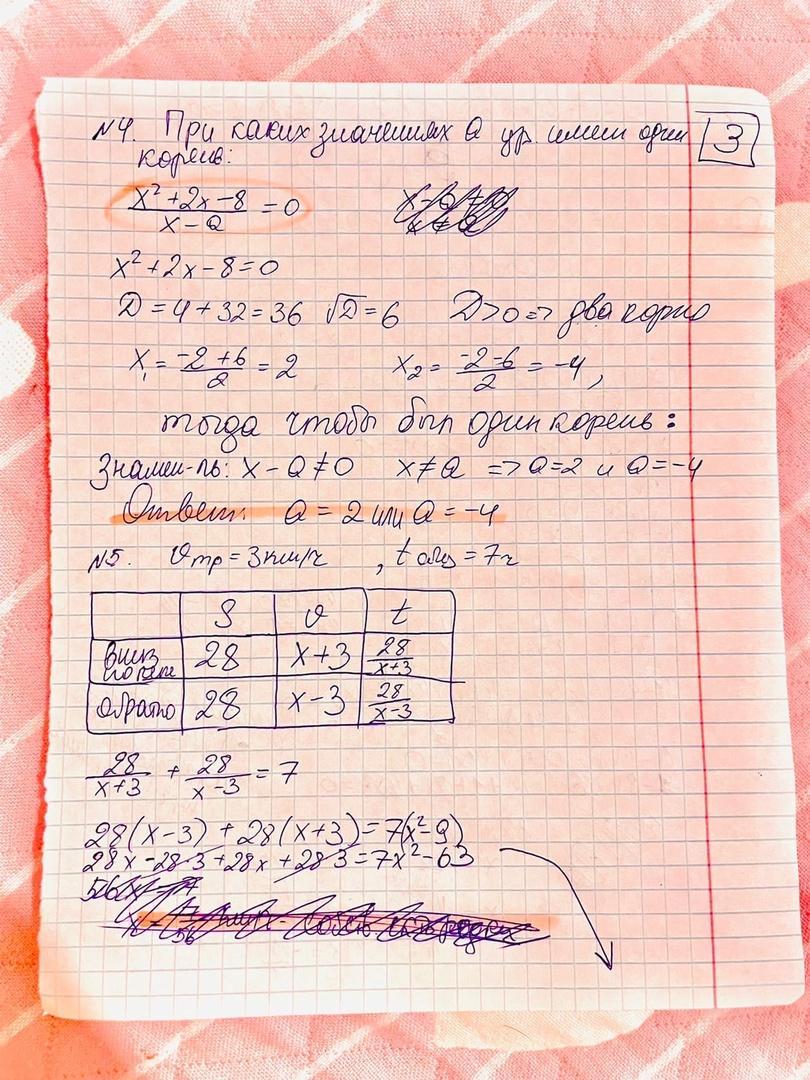 N4. При каких значениях a ур. имеет один
3
корень:
x²+2x-8 / x-a = 0
x²+2x-8=0
D=4+32=36 √D=6 D>0 => два корня
x₁ = -2+6 / 2 = 2 x₂ = -2-6 / 2 = -4,
тогда чтобы был один корень:
Знамен-ль: x-a≠0 x≠a => a=2 и a=-4
Ответ: a=2 или a=-4
N5. vтр=3км/ч, t общ=7ч
S v t
вниз по реке 28 x+3 28/x+3
обратно 28 x-3 28/x-3
28/x+3 + 28/x-3 = 7
28(x-3)+28(x+3)=7(x²-9)
28x-28·3+28x+28·3=7x²-63